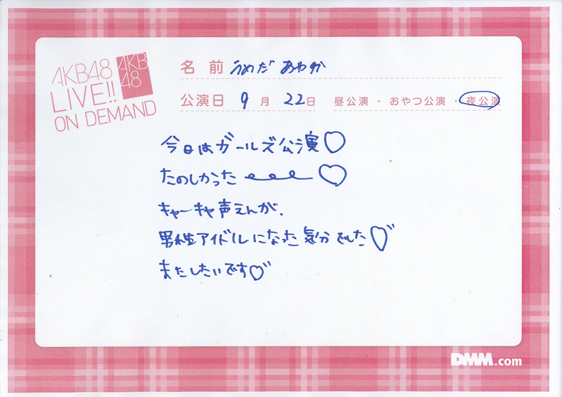 AKB48
LIVE!!
ON DEMAND
AKB
48
名前 うめだ あやか
公演日 9月 22日 昼公演・おやつ公演・夜公演
今日はガールズ公演♡
たのしかった ♡
キャーキャ声えんが、
男性アイドルになった気分でした♡
またしたいです♡
DMM.com